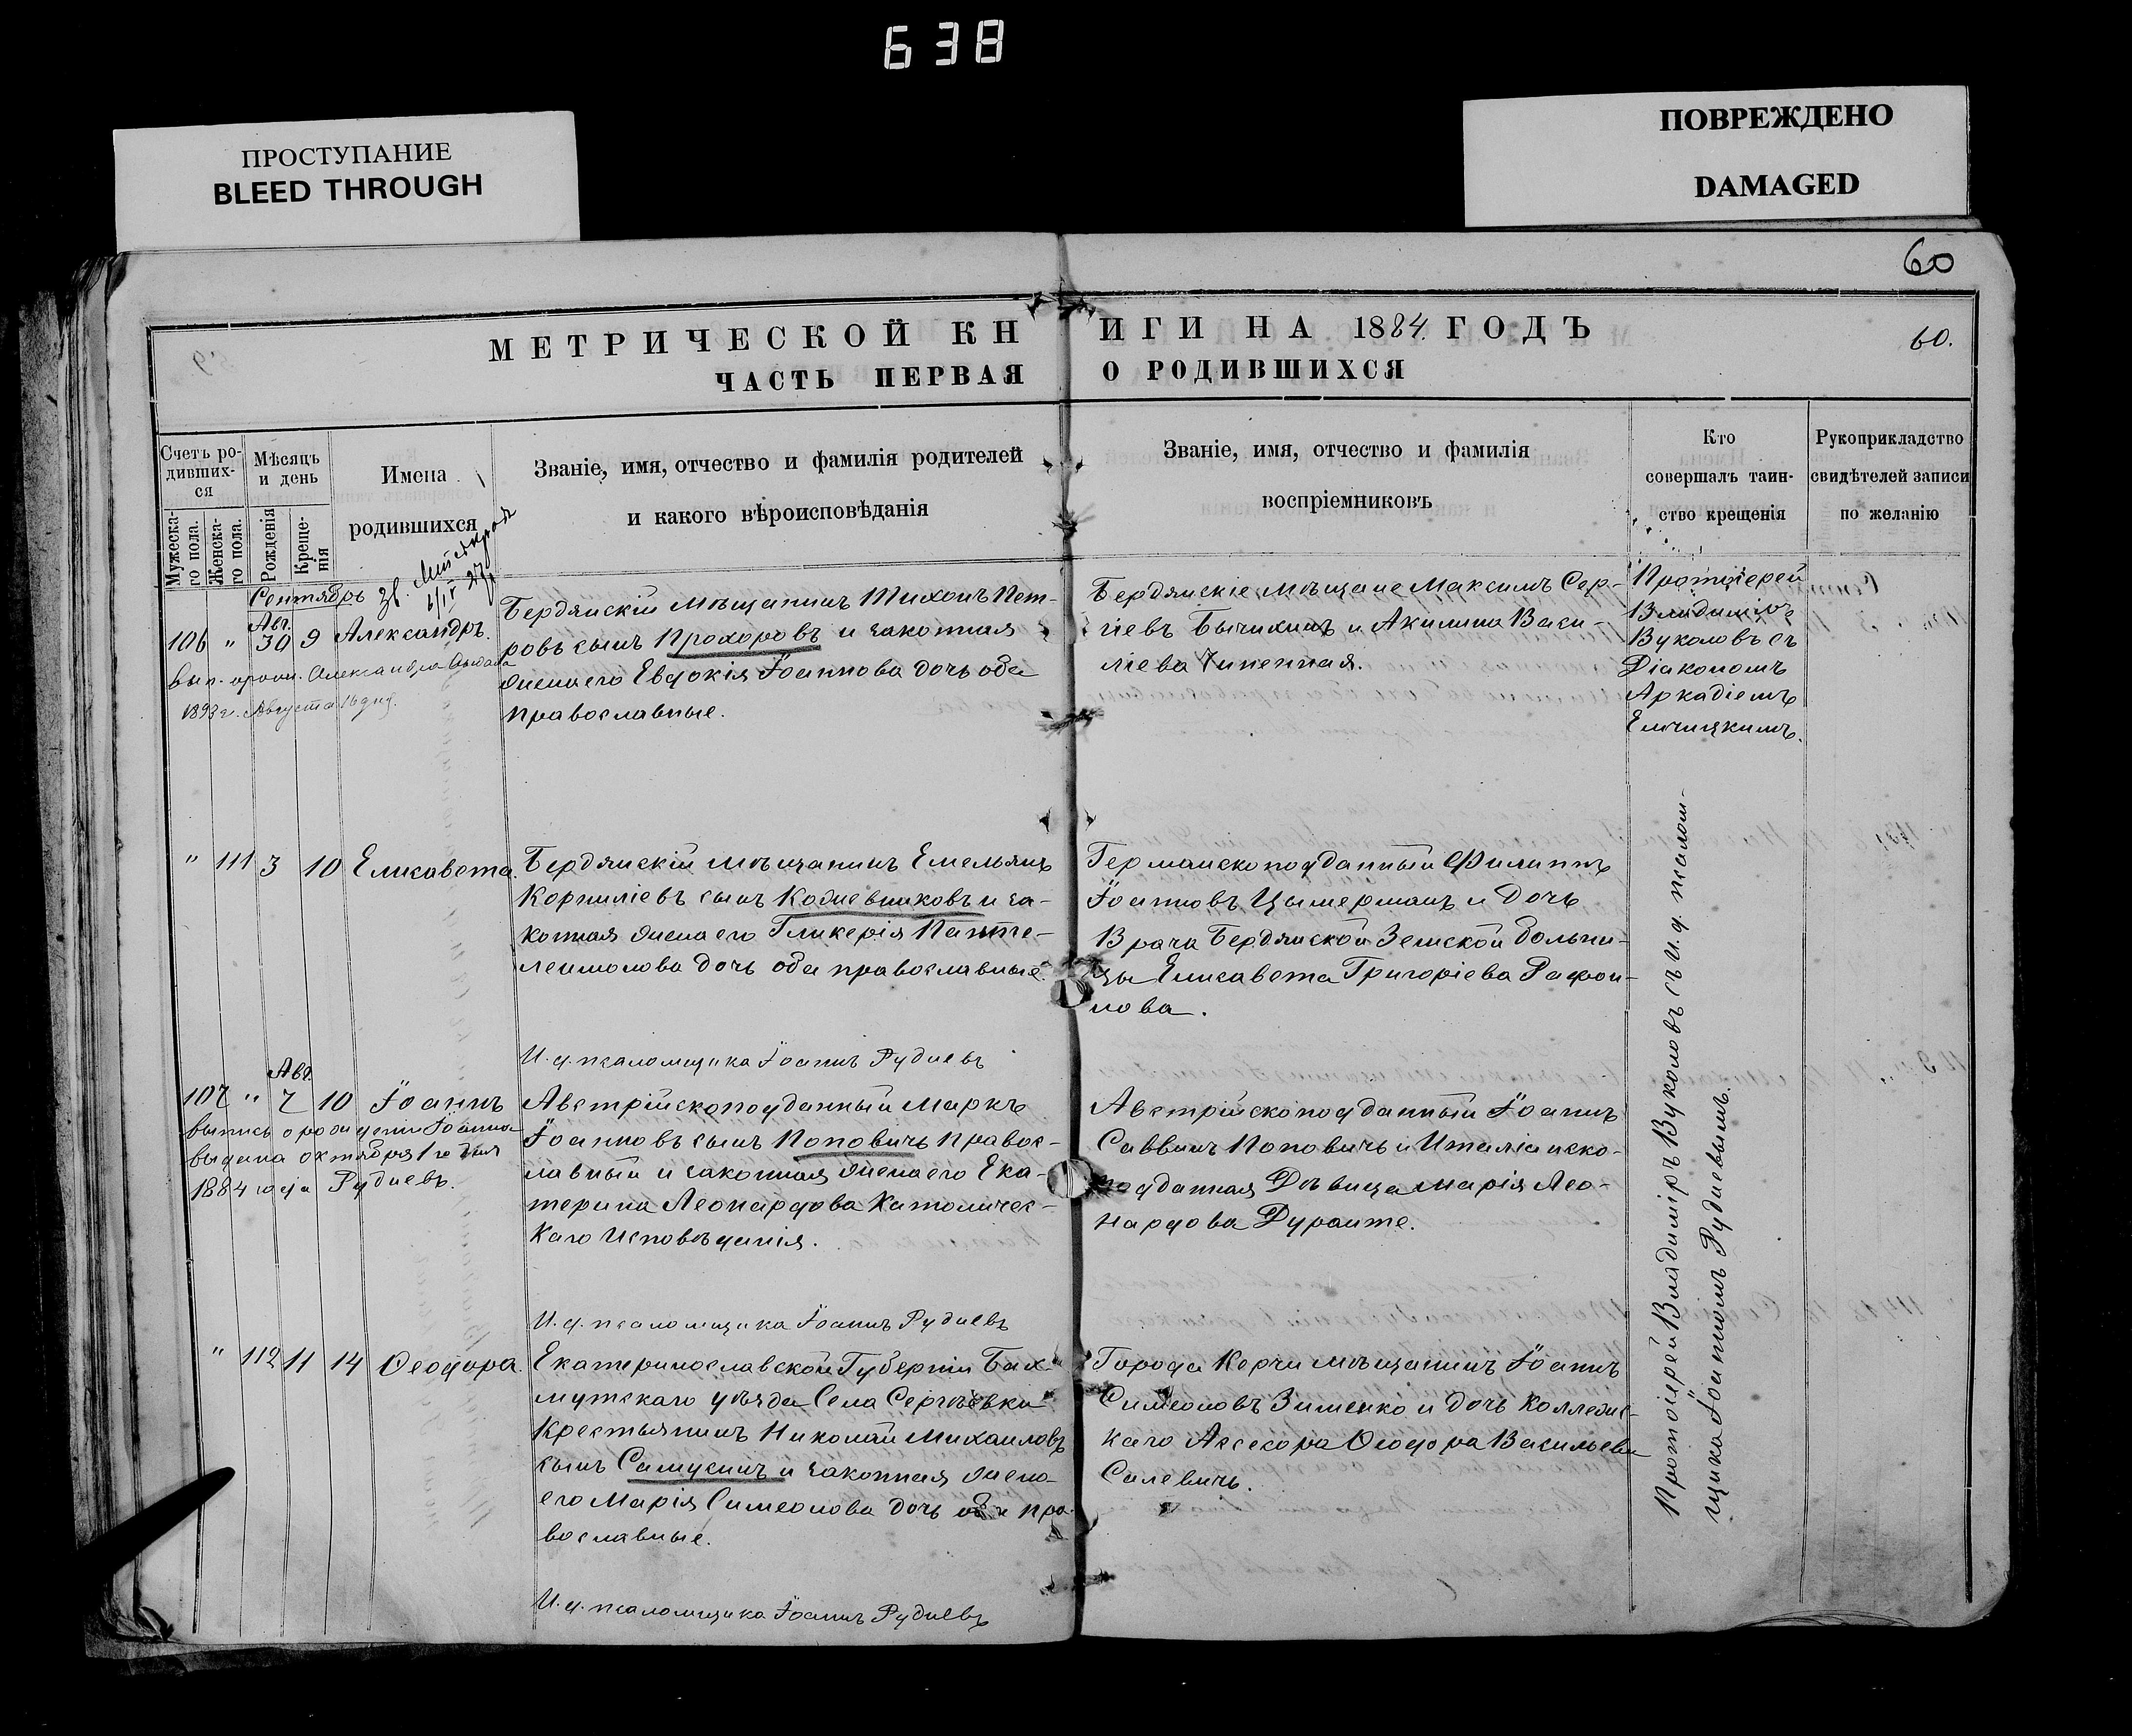 638
ПРОСТУПАНИЕ
BLEED THROUGH
ПОВРЕЖДЕНО
DAMAGED
60
МЕТРИЧЕСКОЙ КНИГИ НА 1884 ГОДЪ
60.
ЧАСТЬ ПЕРВАЯ О РОДИВШИХСЯ
Счетъ ро-
дивших-
ся
Мужеска-
го пола.
Женска-
го пола.
Мѣсяцъ
и день
Рожденія
Креще-
нія
Имена
родившихся
Званіе, имя, отчество и фамилія родителей
и какого вѣроисповѣданія
Званіе, имя, отчество и фамилія
воспріемниковъ
Кто
совершалъ таин-
ство крещенія
Рукоприкладство
свидѣтелей записи
по желанію
Сентябрь
Авг.
106 " 30 9 Александръ.
1893 г. Августа 16 дня.
Бердянскій мѣщанинъ Тихонъ Пет-
ровъ сынъ Прохоровъ и законная
жена его Евдокія Іоаннова дочь оба
православные.
Бердянскіе мѣщане Максимъ Сер-
гіевъ Бычихинъ и Акилина Васи-
ліева
Протоіерей
Владиміръ
Вуколовъ съ
Діакономъ
Аркадіемъ
" 111 3 10 Елисавета.
Бердянскій мѣщанинъ Емельянъ
Корниліевъ сынъ Кожевниковъ и за-
конная жена его Гликерія Панте-
леимонова дочь оба православные.
Германскоподданный Филиппъ
Іоанновъ Цымерманъ и дочь
Врача Бердянской Земской Больни-
цы Елисавета Григоріева Рафаи-
лова.
И. д. псаломщика Іоаннъ Рудневъ
Авг.
107 " 7 10 Іоаннъ
выпись о рожденіи Іоанна
выдана октября 1го дня
1884 года Рудневъ.
Австрійскоподданный Маркъ
Іоанновъ сынъ Поповичъ правос-
лавный и законная жена его Ека-
терина Леонардова Католичес-
каго Исповѣданія.
Австрійскоподданный Іоаннъ
Саввинъ Поповичъ и Италіанско-
подданная Дѣвица Марія Лео-
нардова Дуранте.
И. д. псаломщика Іоаннъ Рудневъ
" 112 11 14 Ѳеодора.
Екатеринославской Губерніи Бах-
мутскаго уѣзда Села Сергѣевки
Крестьянинъ Николай Михаиловъ
сынъ Самусинъ и законная жена
его Марія Симеонова дочь оба пра-
вославные.
Города Керчи мѣщанинъ Іоаннъ
Симеоновъ Зименко и дочь Коллежс-
каго Ассесора Ѳеодора Васильева
Силевичъ.
Протоіерей Владиміръ Вуколовъ съ И. д. псалом-
щика Іоанномъ Рудневымъ.
И. д. псаломщика Іоаннъ Рудневъ